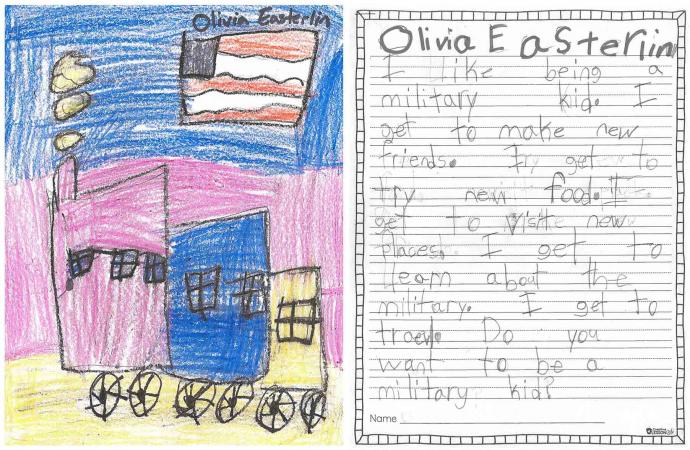 Olivia Easterlin
Olivia Easterlin
I like being a
military kid. I
get to make new
friends. I get to
try new food. I
get to visit new
places. I get to
learn about the
military. I get to
travel. Do you
want to be a
military kid?
Name